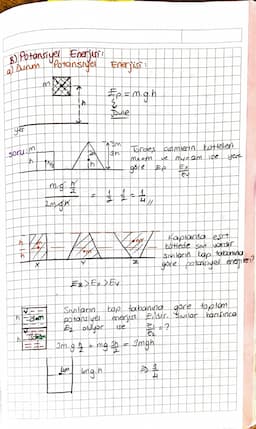 B) Potansiyel Enerjisi:
a) Durum Potansiyel Enerjisi:
m
h
Ep = m.g.h
Joule
yer
soru: m
h
h/2
2m
h
Türdeş cisimlerin kütleleri
m ve ise yere
göre Ep Ex
Ey
mg h/2
2mgh
= 1/2 · 1/2 = 1/4 //
h
h
x
y
z
Kaplarda eşit
kütlede sıvı vardır
Sıvıların kap tabanına
göre potansiyel enerjileri?
Ez > Ex > Ey
h
h
Sıvıların kap tabanına göre toplam
potansiyel enerjisi E1'dir. Sıvılar karışınca
E2 oluyor ise E1/E2 = ?
3m g h/2 + mg 3h/2 = 3mgh
4m
4mg.h
⇒ 3/4